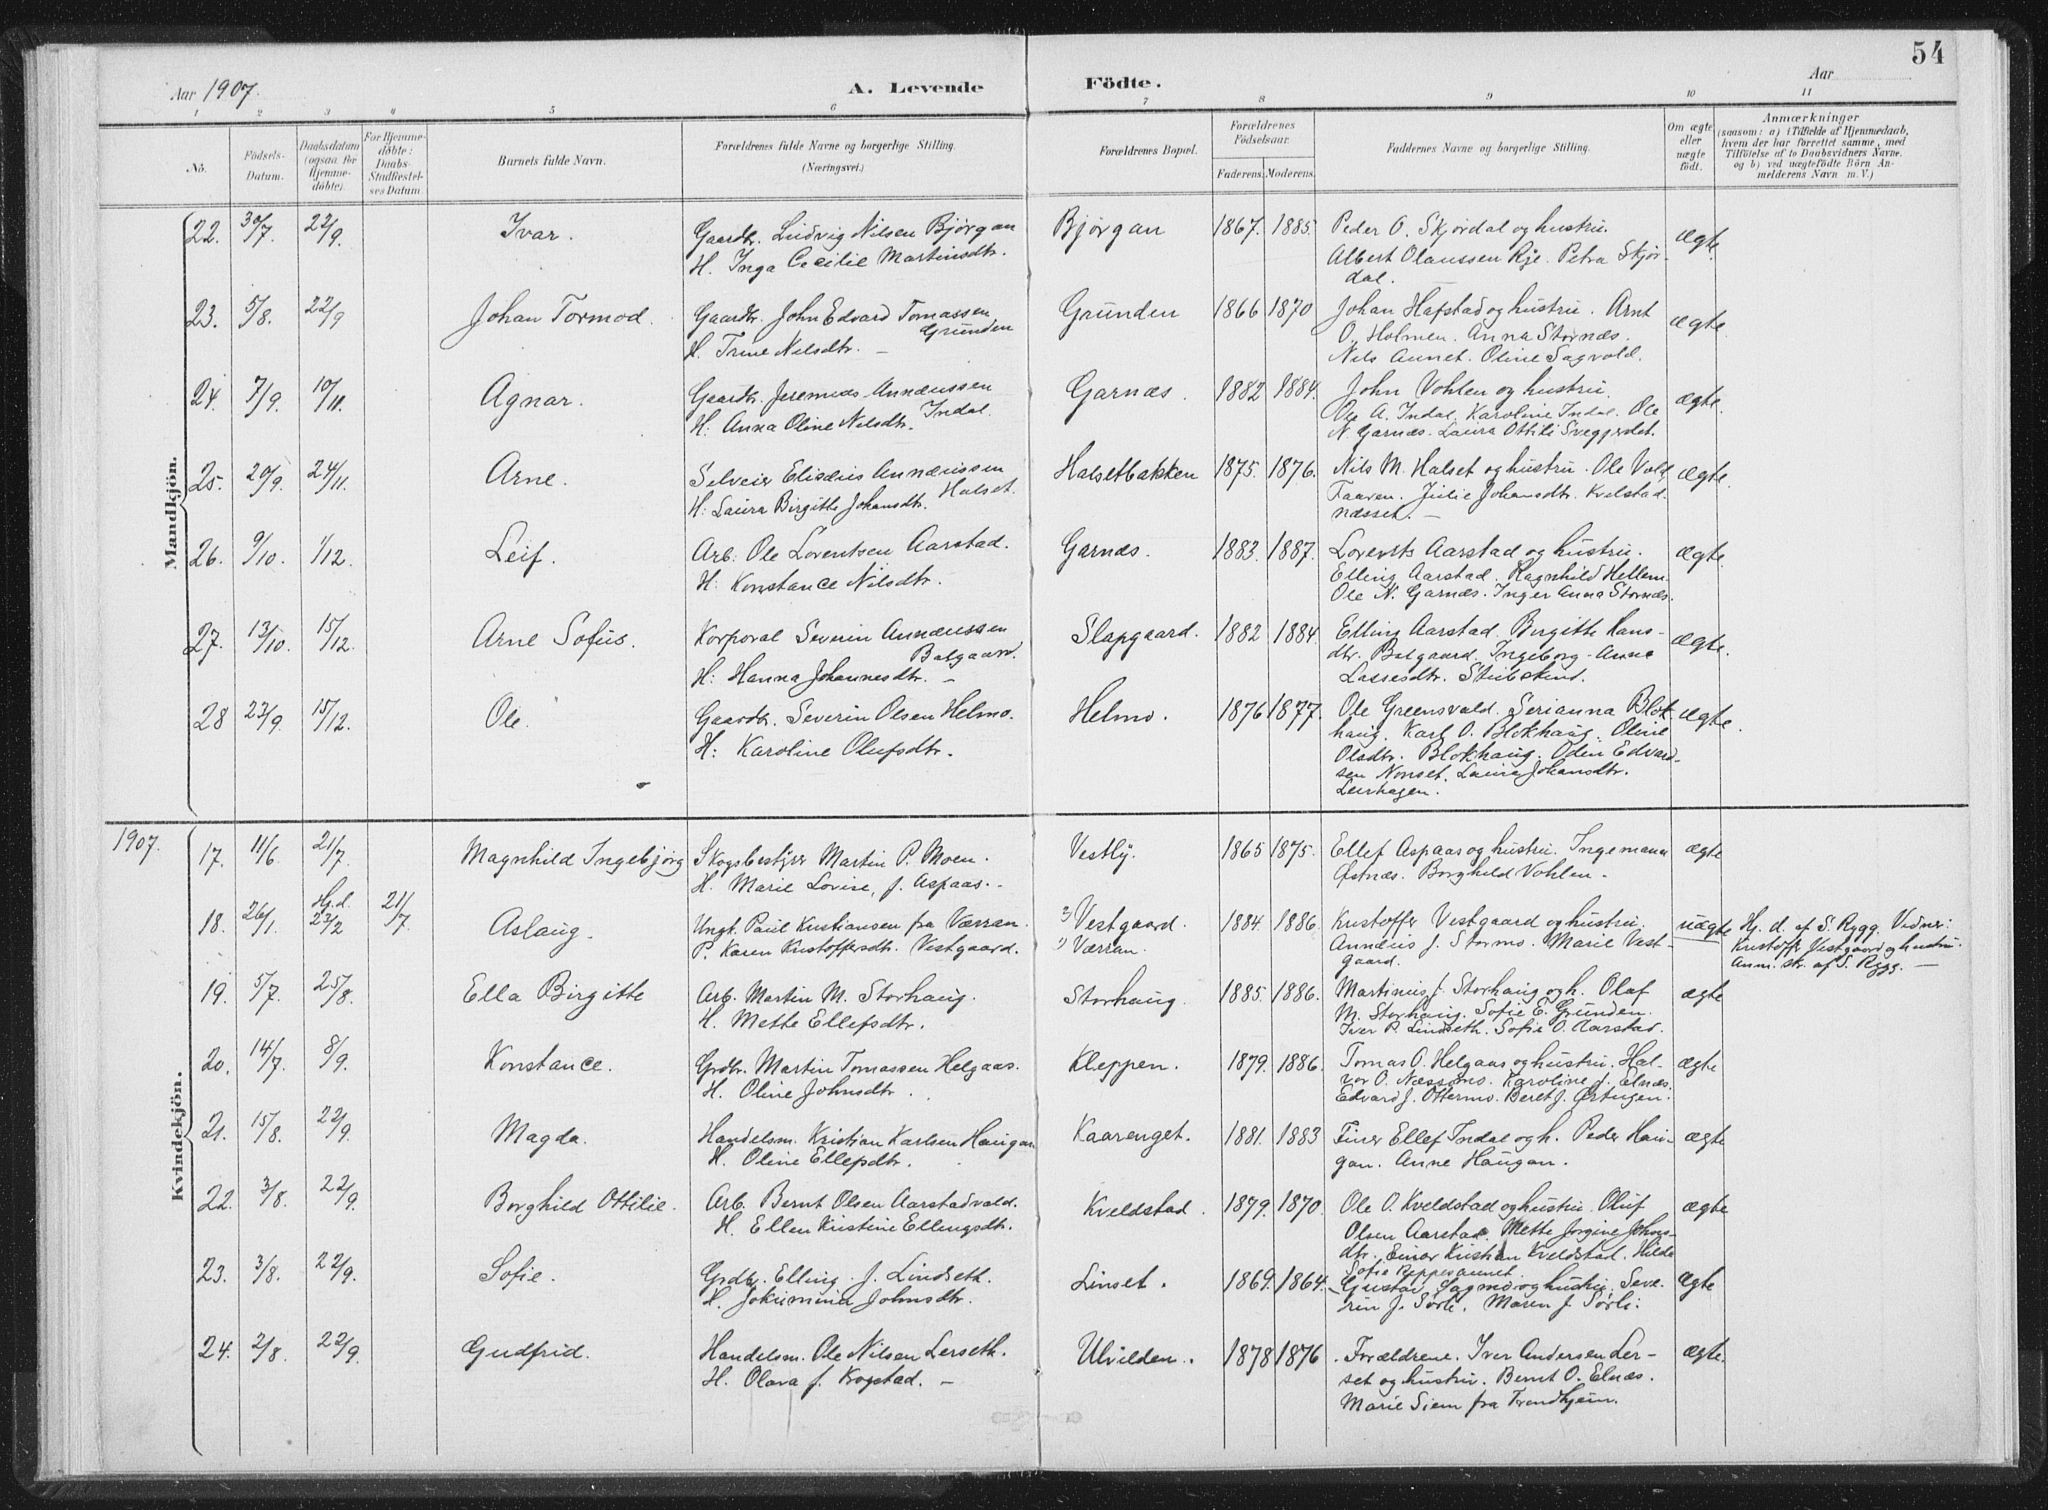 54
Aar 1907.
A. Levende
Födte.
Aar
1 2 3 4 5 6 7 8 9 10 11
No.
Födsels-Datum.
Daabsdatum (ogsaa for Hjemmedöbte).
For Hjemmedöbte: Daabs-Stadfæstelses Datum
Barnets fulde Navn.
Forældrenes fulde Navne og borgerlige Stilling.
(Næringsvei.)
Forældrenes Bopæl.
Forældrenes Födselsaar.
Faderens. Moderens.
Faddernes Navne og borgerlige Stilling.
Om ægte eller uægte födt.
Anmærkninger
(saasom: a) i Tilfælde af Hjemmedaab, hvem der har forrettet samme, med Tilföielse af to Daabsvidners Navne. og b) ved uægtefödte Börn Anmelderens Navn m. V.)
Mandkjön.
22. 30/7. 22/9. Ivar. Gaardbr. Ludvig Nilsen Bjørgan Bjørgan 1867. 1885. Peder O. Skjørdal og hustru. ægte.
H. Inga Cecilie Martinsdtr. Albert Olaussen Rje. Petra Skjør-
dal.
23. 5/8. 22/9 Johan Tormod. Gaardbr. John Edvard Tomassen Grunden 1866 1870 Johan Hafstad og hustru. Arnt ægte.
Grunden
H. Trine Nilsdtr. – O. Holmen. Anna Stornæs.
Nils Aunet. Oline Sagvold.
24. 7/9. 10/11. Agnar. Gaardbr. Jeremias Annæussen Garnæs. 1882 1884. John Vohlen og hustru. ægte.
H. Anna Oline Nilsdtr. Indal. Ole A. Indal. Karoline Indal. Ole
N. Garnæs. Laura Ottili Sveggerdet.
25. 20/9. 24/11. Arne. Selveier Elisæus Annæussen Halsetbakken 1875. 1876. Nils M. Halset og hustru. Ole Vold, ægte.
H: Laura Birgitte Johansdtr. Halset. Taaren. Julie Johansdtr. Kvelstad-
næsset. –
26. 9/10. 1/12. Leif. Arb. Ole Lorentsen Aarstad. Garnæs. 1883. 1887. Lorents Aarstad og hustru. ægte.
H: Konstance Nilsdtr. Elling Aarstad. Ragnhild Hellem.
Ole N. Garnæs. Inger Anna Stornæs.
27. 13/10. 15/12. Arne Sofus. Korporal Severin Annæussen Slapgaard. 1882 1884. Elling Aarstad. Birgitte Hans- ægte.
Balgaard.
dtr. Balgaard. Ingeborg Anna
H: Hanna Johannesdtr. – Lassesdtr. Stubskind.
28 23/9. 15/12. Ole. Gaardbr. Severin Olsen Helmo. Helmo. 1876 1877. Ole Greensvald. Serianna Blok- ægte.
H: Karoline Olufsdtr. haug. Karl O. Blokhaug. Oline
Olsdtr. Blokhaug. Oden Edvard-
sen Nonset. Laura Johansdtr.
Leirhagen.
1907.
Kvindekjön.
17. 11/6. 21/7. Magnhild Ingebjørg Skogsbestyrer Martin P. Moen. Vestly. 1865 1875. Ellef Aspaas og hustru. Ingemann ægte
H. Marie Lovise, f. Aspaas. Østnæs. Borghild Vohlen.
18. 26/1. Hj.d. 23/2 21/7. Aslaug. Ungk. Paul Kristiansen fra Værran. 2) Vestgaard. 1884. 1886. Kristoffer Vestgaard og hustru. uægte Hj. d. af S. Rygg. Vidner:
P. Karen Kristoffersdtr. Vestgaard. 1) Værran. Annæus J. Stormo. Marie Vest- Kristoffer Vestgaard og hustru.
gaard. Anm. sk. af S. Rygg. –
19. 5/7. 25/8. Ella Birgitte Arb. Martin M. Storhaug. Storhaug. 1885. 1886. Martinus J. Storhaug og h. Olaf ægte
H. Mette Ellefsdtr. M. Storhaug. Sofie E. Grunden.
Iver P. Lindseth. Sofie O. Aarstad.
20. 14/7. 8/9. Konstance. Grdbr. Martin Tomassen Helgaas. Kleppen. 1879. 1886. Tomas O. Helgaas og hustru. Hal- ægte
H. Oline Johnsdtr. vor O. Næssmo. Karoline J. Elnæs.
Edvard J. Ottermo. Beret J. Ørtugen.
21. 15/8. 22/9. Magda. Handelsm. Kristian Karlsen Haugan Kaarenget. 1881. 1883 Einer Ellef Indal og h. Peder Hau- ægte
H. Oline Ellefsdtr. gan. Anne Haugan.
22. 3/8. 22/9. Borghild Ottilie. Arb. Bernt Olsen Aarstadvald. Kveldstad. 1879. 1870. Ole O. Kveldstad og hustru. Oluf ægte
H. Ellen Kristine Ellingsdtr. Olsen Aarstad. Mette Jørgine Johns-
dtr. Einar Kristian Kveldstad. Hilda
Sofie Reppesaunet.
23. 3/8. 22/9. Sofie. Grdbr. Elling J. Lindseth. Linset. 1869. 1864. Gustav Sagmo og hustru. Seve- ægte
H. Jokumina Johnsdtr. rin J. Sørli. Maren J. Sørli.
24. 2/8. 22/9. Gudfrid. Handelsm. Ole Nilsen Lerseth. Ulvilden. 1878 1876 Forældrene. Iver Andersen Ler- ægte.
H. Olava f. Krogstad. – set og hustru. Bernt O. Elnæs.
Marie Siem fra Trondhjem.